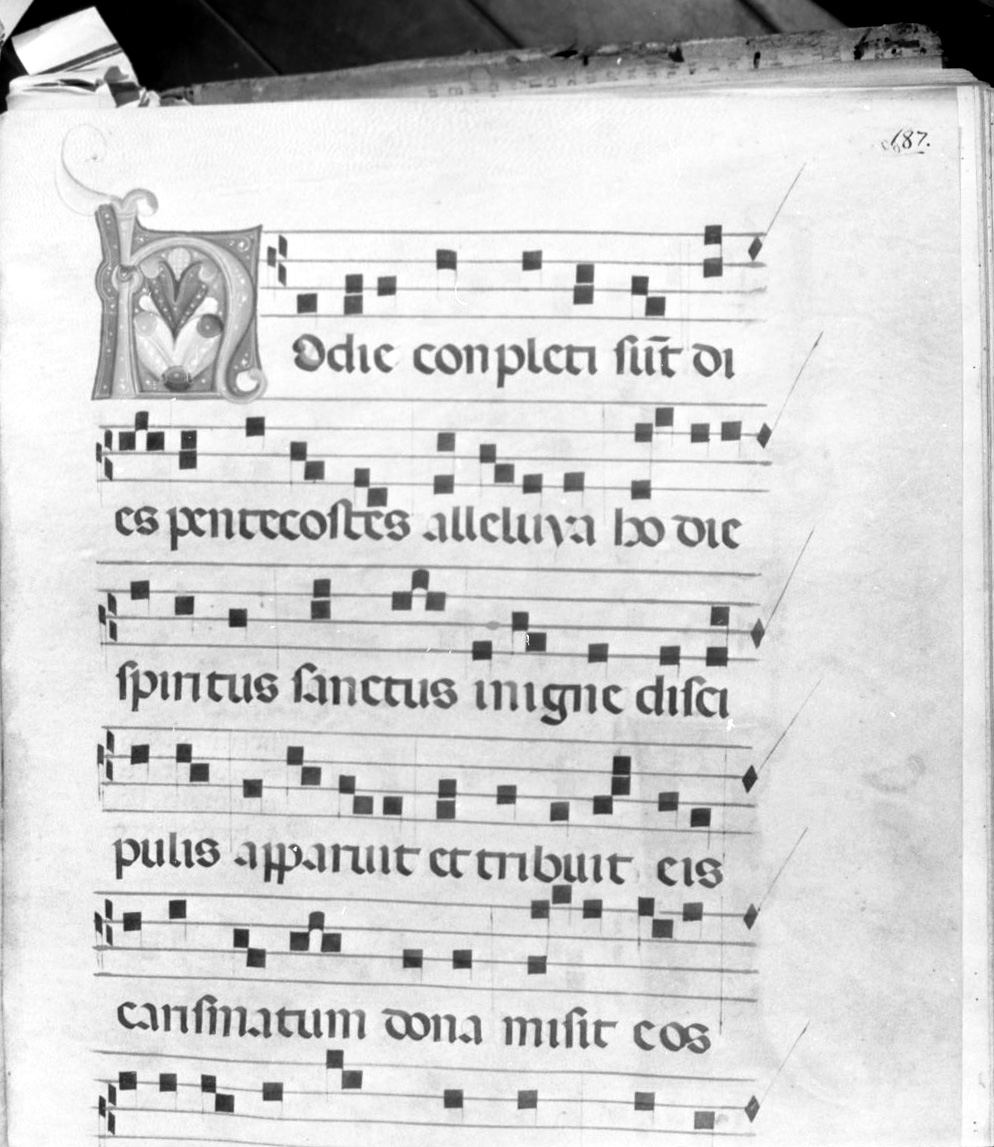 187.
hodie conpleti sūt di
es pentecostes alleluya ho die
spiritus sanctus in igne disci
pulis apparuit et tribuit eis
carismatum dona misit eos